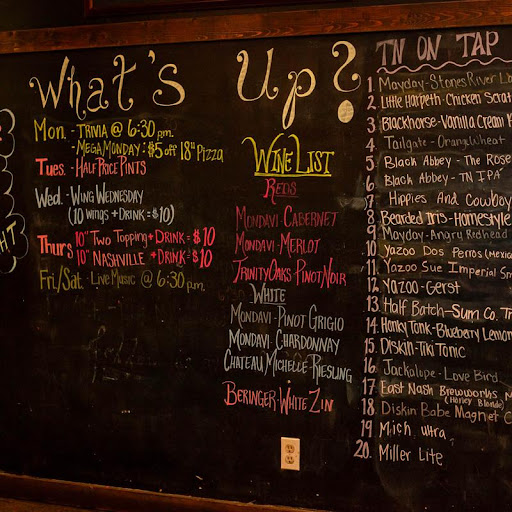 What's Up?
Mon. - TRIVIA @ 6:30 p.m.
- MEGA MONDAY: $5 off 18" PIZZA
Tues. - HALF PRICE PINTS
Wed. - WING WEDNESDAY
(10 WINGS + DRINK = $10)
Thurs 10" TWO TOPPING + DRINK = $10
10" NASHVILLE + DRINK = $10
Fri/Sat. - LIVE MUSIC @ 6:30 p.m.
HT
WINE LIST
REDS
MONDAVI CABERNET
MONDAVI - MERLOT
TRINITY OAKS - PINOT NOIR
WHITE
MONDAVI - PINOT GRIGIO
MONDAVI - CHARDONNAY
CHATEAU MICHELLE - RIESLING
BERINGER - WHITE ZIN
TN ON TAP
1. Mayday - Stones River
2. Little Harpeth - Chicken Scrat
3. Blackhorse - Vanilla Cream
4. Tailgate - Orange Wheat
5. Black Abbey - The Rose
6. Black Abbey - TN IPA
7. Hippies And Cowboy
8. Bearded Iris - Homestyle
9. Mayday - Angry Redhead
10. Yazoo Dos Perros (Mexic
11. Yazoo Sue Imperial Sm
12. Yazoo - Gerst
13. Half Batch - Sum Co. Tr
14. Honky Tonk - Blueberry Lemon
15. Diskin - Tiki Tonic
16. Jackalope - Love Bird
17. East Nash Brewworks
(Honey Blonde)
18. Diskin Babe Magnet C
19. Mich. ultra
20. Miller Lite